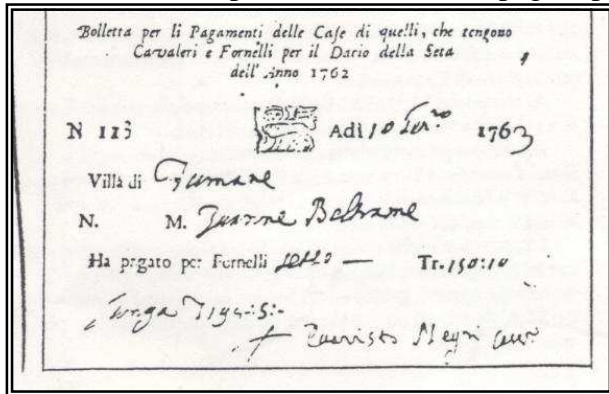 Bolletta per li Pagamenti delle Case di quelli, che tengono
Cavaleri e Fornelli per il Dacio della Seta
dell' Anno 1762
N 113 Adì 10 1763
Villa di Fumane
N. M. Zuanne Beltrame
Ha pagato per Fornelli sette — Tr. 150:10